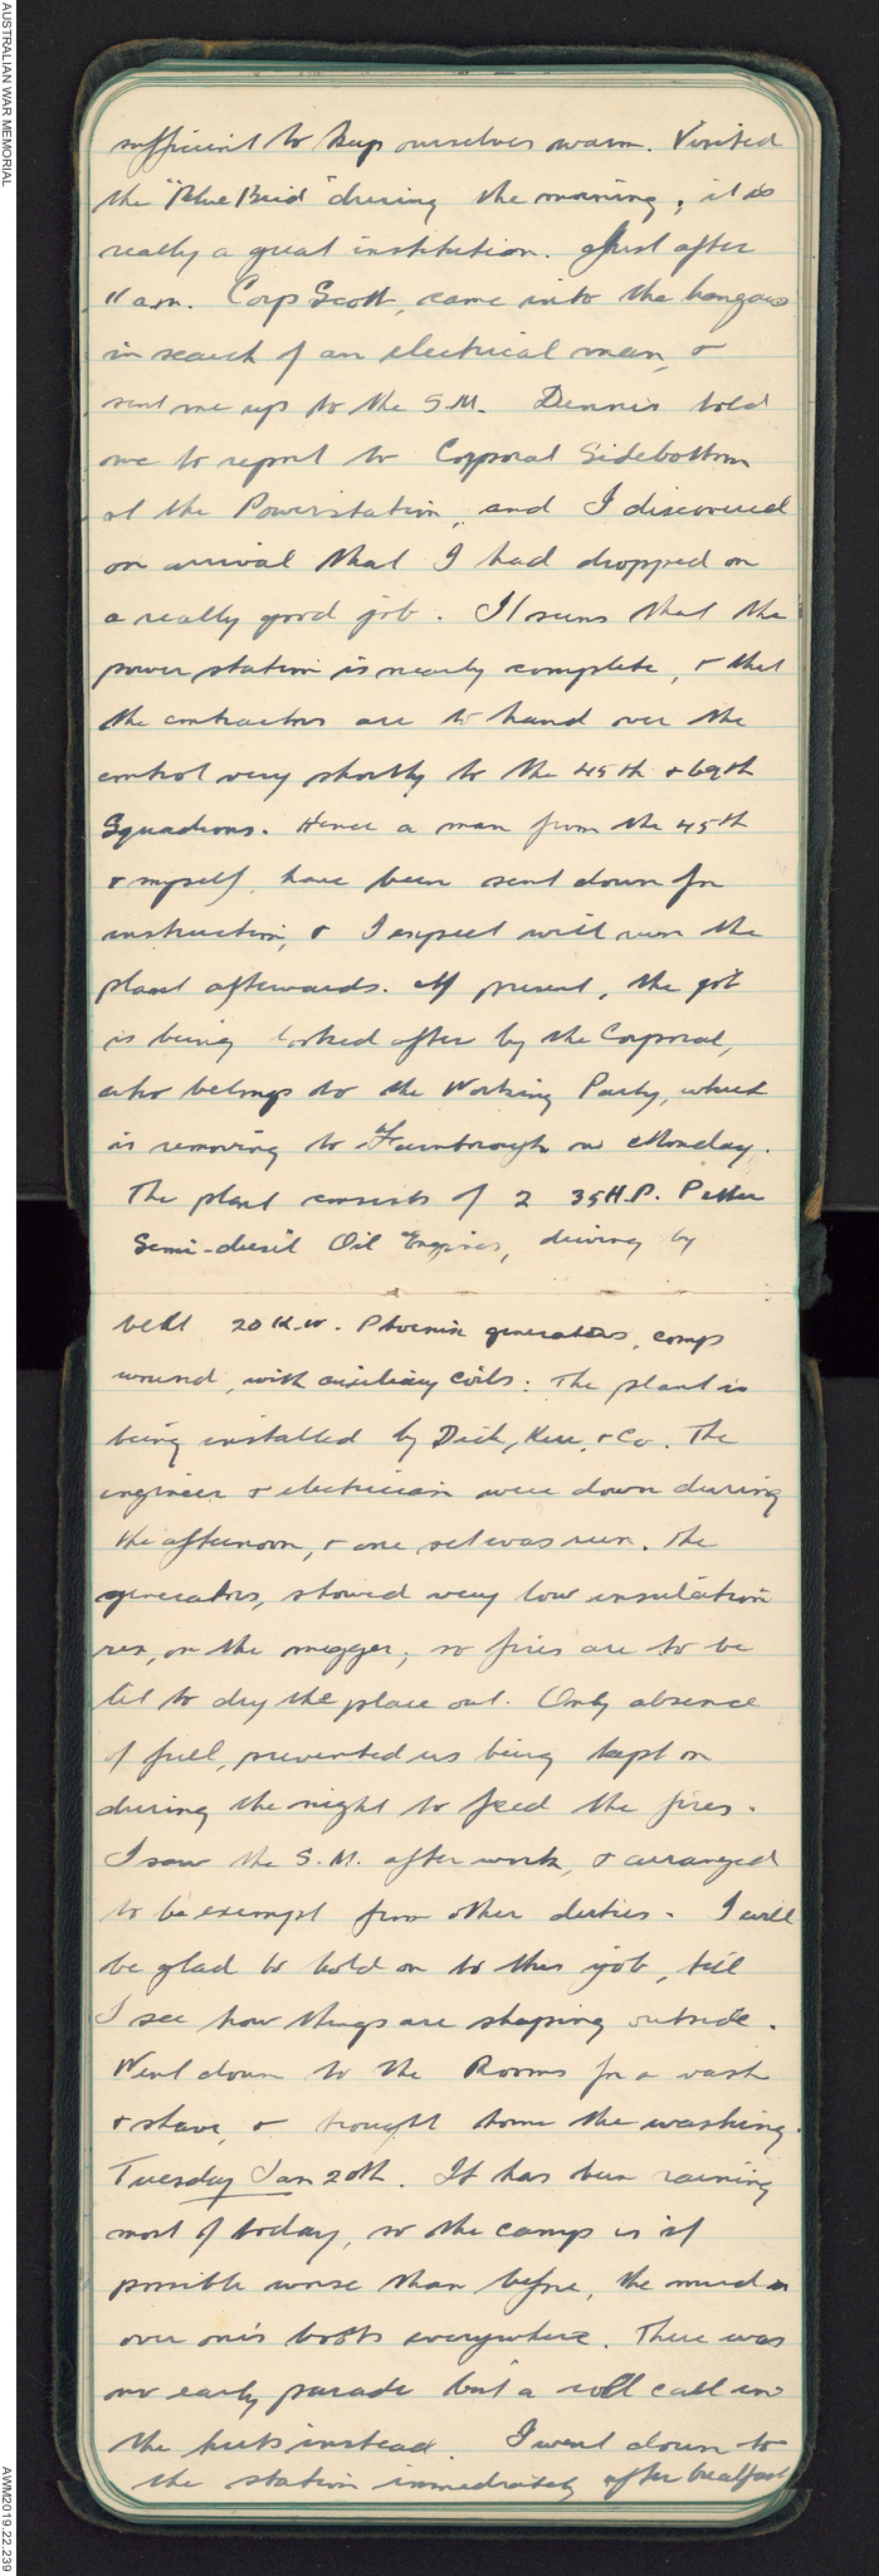 AUSTRALIAN WAR MEMORIAL
sufficient to keep ourselves warm. Visited
the "Blue Bird" during the morning, it is
really a great institution. Just after
11 am. Corp Scott, came into the hangar
in search of an electrical man, &
sent me up to the S.M. Dennis told
me to report to Corporal Sidebottom
at the Powerstation, and I discovered
on arrival that I had dropped on
a really good job. It seems that the
power station is nearly complete, & that
the contractors are to hand over the
control very shortly to the 45th & 69th
Squadrons. Hence a man from the 45th
& myself, have been sent down for
instruction, & I expect will run the
plant afterwards. At present, the job
is being looked after by the Corporal,
who belongs to the Working Party, which
is removing to Farnborough on Monday.
The plant consists of 2 35 H.P. Petter
Semi-diesil Oil Engines, driving by
belt 20 K.W. Phoenix generators, comp
wound, with auxiliary coils: The plant is
being installed by Dick, Kerr, & Co. The
engineer & electrician were down during
the afternoon, & one set was run. The
generators, showed very low insulation
res, on the megger; so fires are to be
lit to dry the place out. Only absence
of fuel, prevented us being kept on
during the night to feed the fires.
I saw the S.M. after work, & arranged
to be exempt from other duties. I will
be glad to hold on to this job, till
I see how things are shaping outside.
Went down to the Rooms for a wash
& shave, & brought home the washing.
Tuesday Jan 20th. It has been raining
most of today, so the camp is if
possible worse than before, the mud is
over one's boots everywhere. There was
no early parade but a roll call in
the huts instead. I went down to
the station immediately after breakfast
AWM2019.22.239